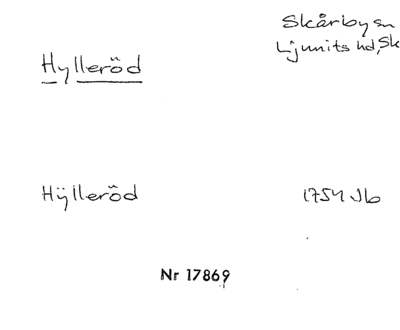 Skårby sn
Hylleröd
Ljunits hd, Sk
Hÿlleröd 1754 Jb
Nr 17869